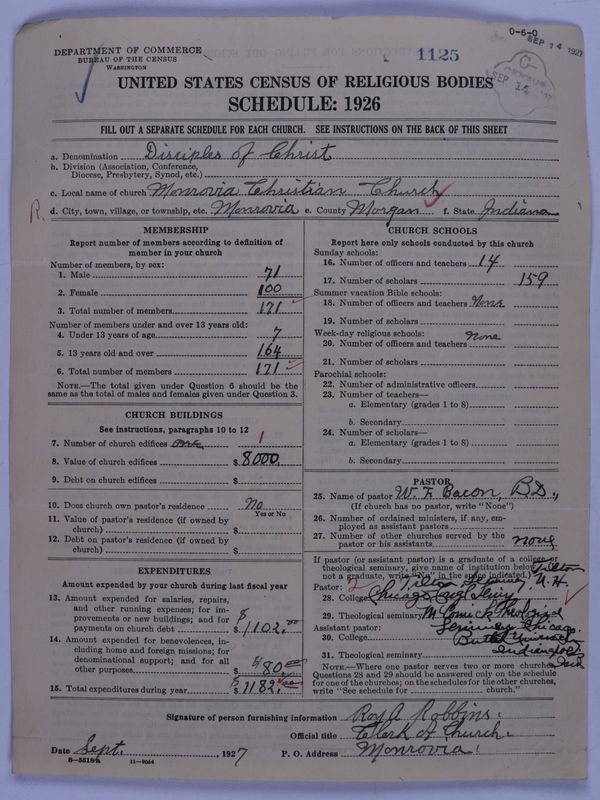 DEPARTMENT OF COMMERCE
BUREAU OF THE CENSUS
WASHINGTON
1125
0-6-0
SEP 14 1927
SEP 14
UNITED STATES CENSUS OF RELIGIOUS BODIES
SCHEDULE: 1926
FILL OUT A SEPARATE SCHEDULE FOR EACH CHURCH. SEE INSTRUCTIONS ON THE BACK OF THIS SHEET
a. Denomination Disciples of Christ
b. Division (Association, Conference,
Diocese, Presbytery, Synod, etc.)
c. Local name of church Monrovia Christian Church
R. d. City, town, village, or township, etc. Monrovia e. County Morgan f. State Indiana
MEMBERSHIP
Report number of members according to definition of
member in your church
Number of members, by sex:
1. Male 71
2. Female 100
3. Total number of members 171
Number of members under and over 13 years old:
4. Under 13 years of age 7
5. 13 years old and over 164
6. Total number of members 171
NOTE.—The total given under Question 6 should be the
same as the total of males and females given under Question 3.
CHURCH BUILDINGS
See instructions, paragraphs 10 to 12
7. Number of church edifices one 1
8. Value of church edifices $ 8000.
9. Debt on church edifices $
10. Does church own pastor's residence No
Yes or No
11. Value of pastor's residence (if owned by
church) $
12. Debt on pastor's residence (if owned by
church) $
EXPENDITURES
Amount expended by your church during last fiscal year
13. Amount expended for salaries, repairs,
and other running expenses; for im-
provements or new buildings; and for
payments on church debt $ 1102.00
14. Amount expended for benevolences, in-
cluding home and foreign missions; for
denominational support; and for all
other purposes $ 80.00
15. Total expenditures during year $ 1182.00
CHURCH SCHOOLS
Report here only schools conducted by this church
Sunday schools:
16. Number of officers and teachers 14
17. Number of scholars 159
Summer vacation Bible schools:
18. Number of officers and teachers None
19. Number of scholars
Week-day religious schools: none
20. Number of officers and teachers
21. Number of scholars
Parochial schools:
22. Number of administrative officers
23. Number of teachers—
a. Elementary (grades 1 to 8)
b. Secondary
24. Number of scholars—
a. Elementary (grades 1 to 8)
b. Secondary
PASTOR
25. Name of pastor W. F. Bacon, B.D.,
(If church has no pastor, write "None")
26. Number of ordained ministers, if any, em-
ployed as assistant pastors
27. Number of other churches served by the
pastor or his assistants none
If pastor (or assistant pastor) is a graduate of a college or
theological seminary, give name of institution below; if
not a graduate, write "No" in the space indicated.)
Pastor: N.H.
28. College
29. Theological seminary McCormick Theological
Assistant pastor: Seminary Chicago.
30. College Butler University
31. Theological seminary Indianapolis Ind
NOTE.—Where one pastor serves two or more churches,
Questions 28 and 29 should be answered only on the schedule
for one of the churches; on the schedules for the other churches,
write "See schedule for church."
Signature of person furnishing information Roy A Robbins.
Official title Clerk of Church.
Date Sept. , 1927 P. O. Address Monrovia.
8—5518½ 11—9054